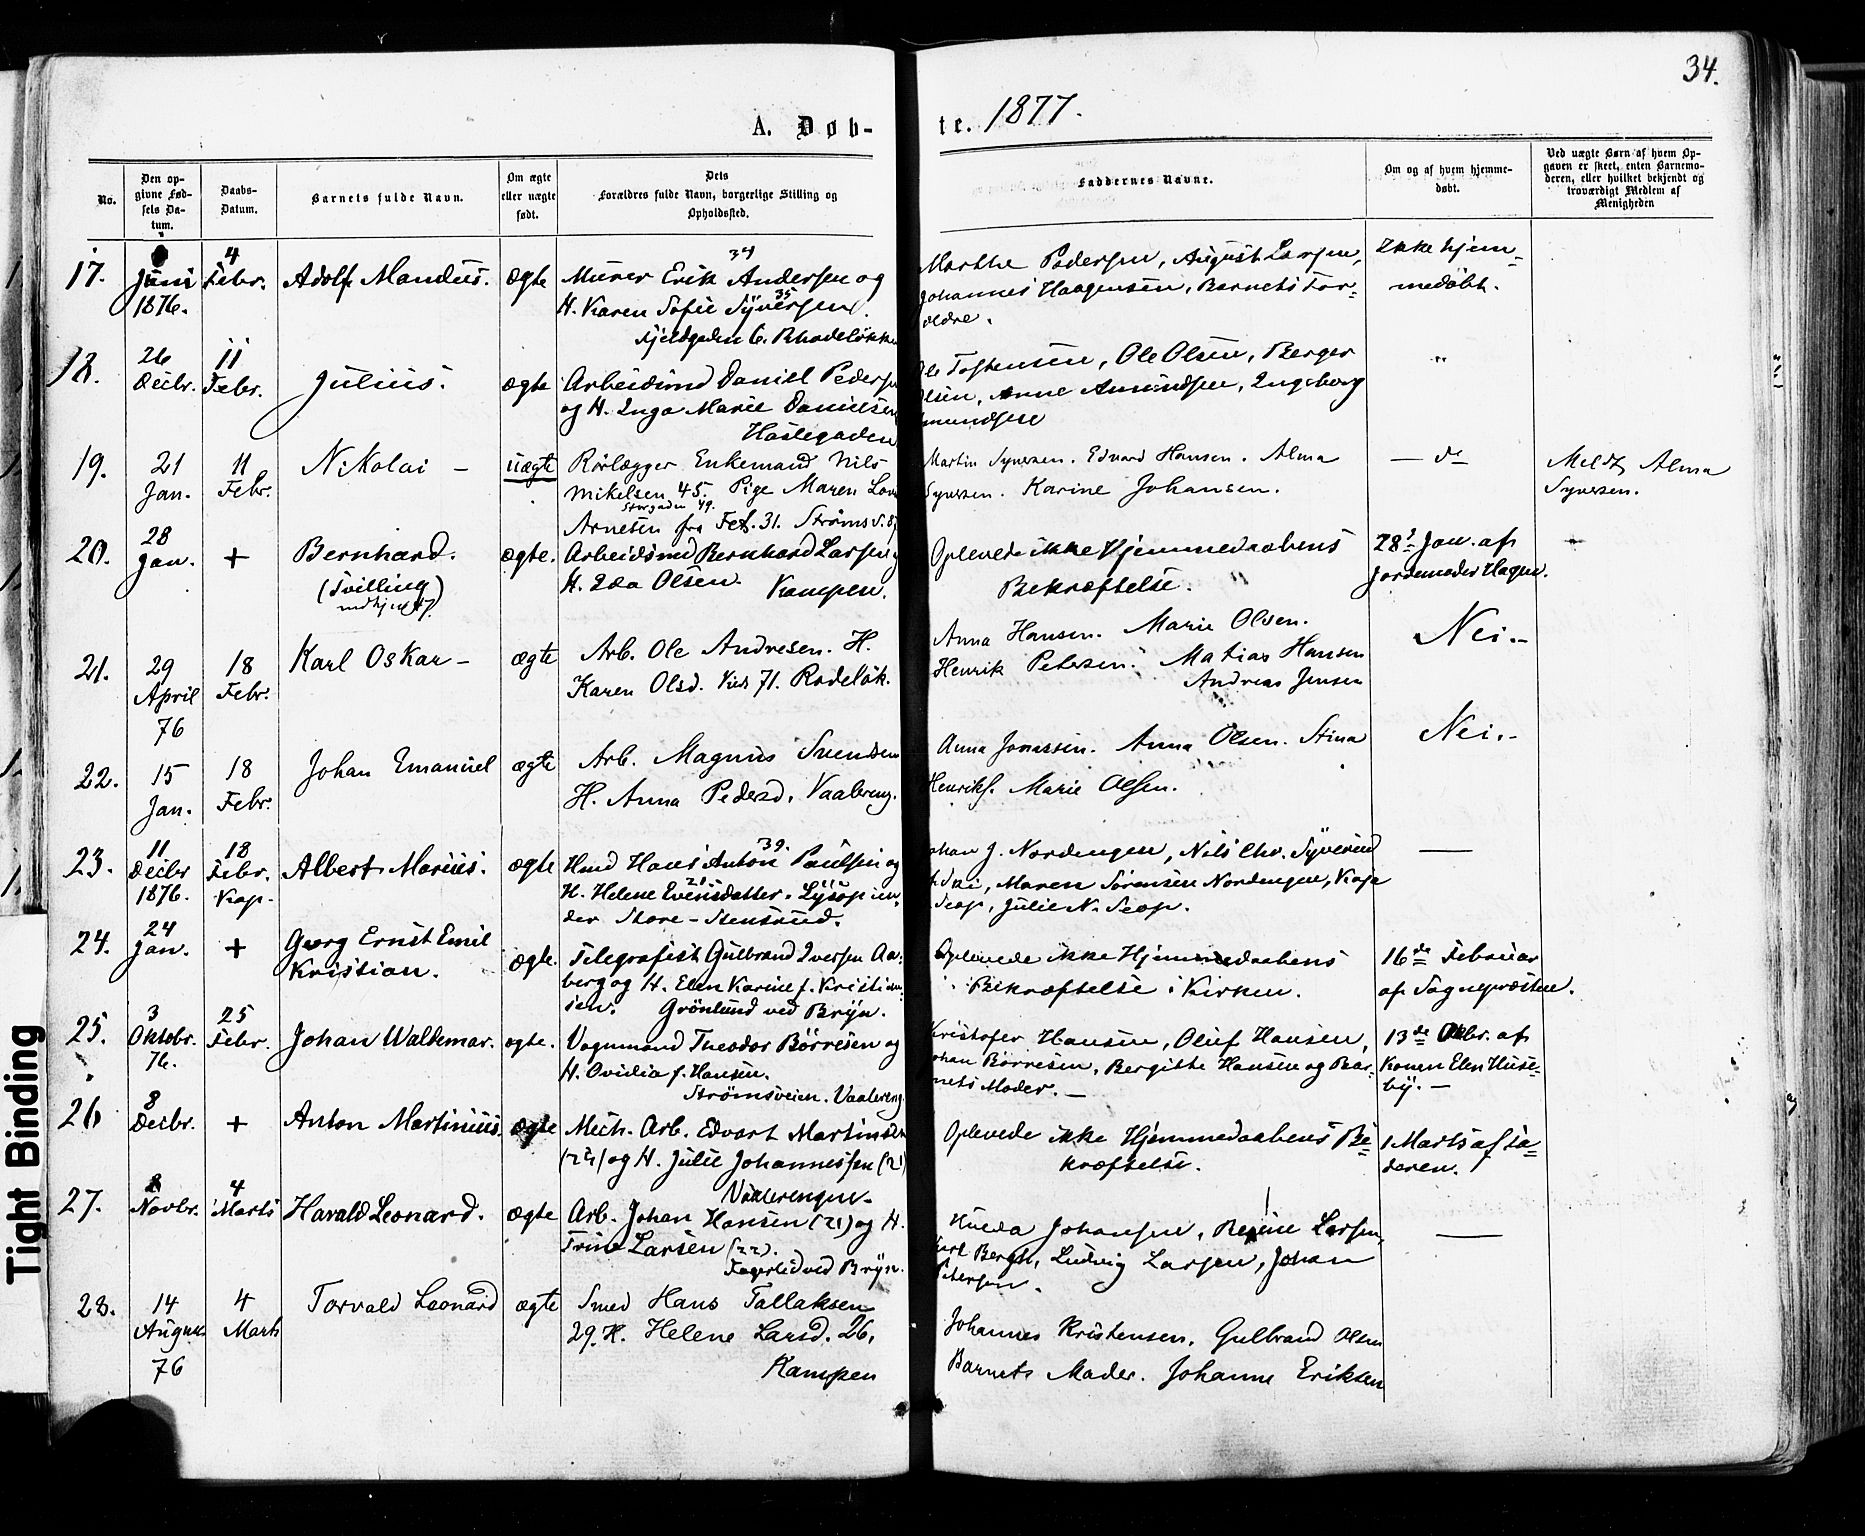 34.
A. Døb- te. 1877.
No.
Den op-
givne Fød-
sels Da-
tum.
Daabs-
Datum.
Barnets fulde Navn.
Om ægte
eller uægte
født.
Dets
Forældres fulde Navn, borgerlige Stilling og
Opholdssted.
Faddernes Navne.
Om og af hvem hjemme-
døbt.
Ved uægte Børn af hvem Op-
gaven er skeet, enten Barnemo-
deren, eller hvilket bekjendt og
troværdigt Medlem af
Menigheden
17.
Juni
1876.
4
Febr.
Adolf Mandus.
ægte
34
Murer Erik Andersen og
35
H. Karen Sofie Syversen.
Fjeldgaden 6. Rhodeløkke
Marthe Pedersen, August Larsen,
Johannes Haagensen, Barnets For-
ældre.
Ikke hjem-
medøbt.
18.
26
Decbr.
11
Febr.
Julius.
ægte
Arbeidsmd Daniel Peders
og H. Inga Marie Danielsen
Haslegaden
Ole Tostensen, Ole Olsen, Berger
Olsen, Anne Amundsen, Ingeborg
mundsen
"
19.
21
Jan.
11
Febr.
Nikolai -
uægte
Rørlægger Enkemand Nils
Mikelsen 45. Pige Maren Lov
Storgaden 49.
Arnesen fra Fet. 31. Strøms v. 87
Martin Syversen. Edvard Hansen. Alma
Syversen. Karine Johansen.
— do
Meldt Alma
Syversen.
20.
28
Jan.
+
Bernhard.
(Tvilling)
ægte.
Arbeidsmd Bernhard Larsen og
H. Ida Olsen. Kampen.
Oplevede ikke Hjemmedaabens
Bekræftelse.
28 Jan. af
Jordemoder Hagen.
21.
29
April
76
18
Febr.
Karl Oskar -
ægte
Arb. Ole Andresen. H.
Karen Olsd. 71. Rodeløk.
Anna Hansen. Marie Olsen.
Henrik Petersen. Matias Hansen
Andreas Jensen
Nei.-
22.
15
Jan.
18
Febr.
Johan Emanuel
ægte
Arb. Magnus Svendsen
H. Anna Pedersd. Vaalereng.
Anna Jonassen. Anna Olsen. Stina
Henriks. Marie Olsen.
Nei.-
23.
11
Decbr
1876.
18
Febr.
Kap.
Albert Marius.
ægte
39.
Hmd Hans Anton Paulsen og
H. Helene Evensdatter. Lysop un-
der Store-Stensrud.
Johan J. Nordengen, Nils Chr. Syverud
Maren Sørensen Nordengen, Kaja
Seop, Julie N. Seop.
—
24.
24
Jan.
+
Georg Ernst Emil
Kristian.
ægte.
Telegrafist Gulbrand Iversen Aa-
berg og H. Elen Karine f. Kristian-
sen. Grønlund ved Bryn.
Oplevede ikke Hjemmedaabens
Bekræftelse i Kirken.
16de Februar
af Sognepræsten.
25.
3
Oktobr.
76.
25
Febr.
Johan Waldemar.
ægte.
Vognmand Theodor Børresen og
H. Ovidia f. Hansen.
Strømsveien. Vaalereng
Kristofer Hansen, Oluf Hansen,
Johan Børresen, Bergitte Hansen og Bar-
nets Moder. -
13de Oktbr. af
Konen Elen Huse-
by. -
26
8
Decbr.
+
Anton Martinius.
ægte
Mech. Arb. Edvart Martinsen
og H. Julie Johannessen (21
Vaalerengen.
Oplevede ikke Hjemmedaabens Be-
kræftelse.
1 Marts af Fa-
deren.
27.
8
Novbr.
4
Marts
Harald Leonard.
ægte
Arb. Johan Hansen (21) og H.
Trine Larsen (22).
Fagerlid ved Bryn.
Hulda Johansen, Regine Larsen,
Karl Bergh, Ludvig Larsen, Johan
Petersen.
—
28.
14
August
76
4
Marts
Torvald Leonard
ægte
Smed Hans Tallaksen
29. H. Helene Larsd. 26,
Kampen
Johannes Kristensen, Gulbrand Olsen
Barnets Moder. Johanne Eriksen
Tight Binding